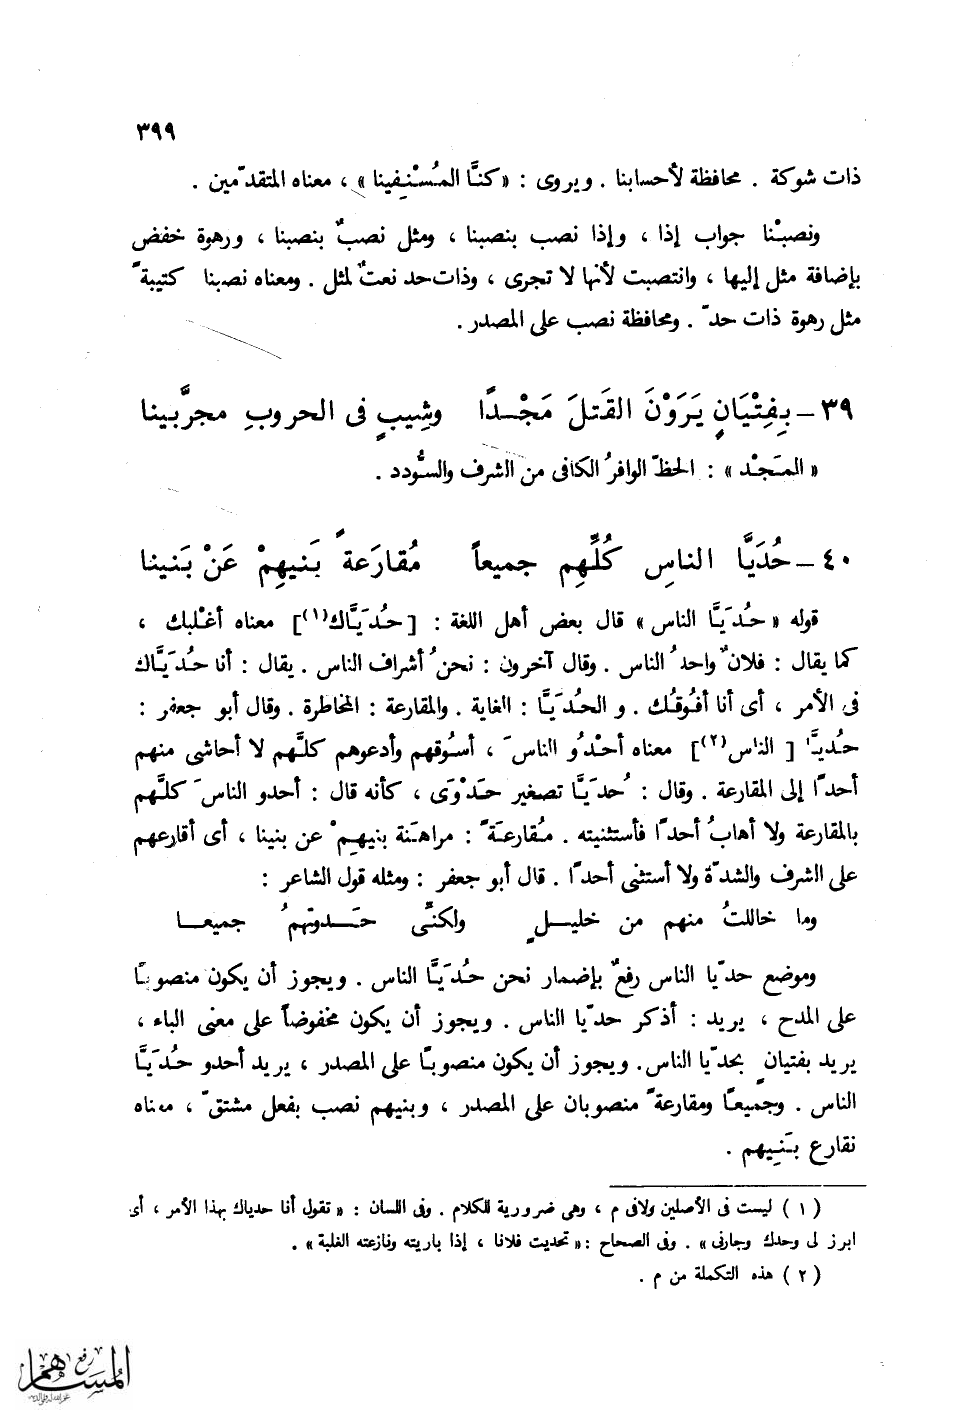 ٣٩٩
ذات شوكة . محافظة لأحسابنا . ويروى : «كنَّا المُسْنِفينا» ، معناه المتقدّمين .
ونصبْنا جواب إذا ، وإذا نصب بنصبنا ، ومثل نصبٌ بنصبنا ، ورهوة خفض
بإضافة مثل إليها ، وانتصبت لأنها لا تجرى ، وذات حد نعتٌ لمثل . ومعناه نصبنا كتيبةً
مثل رهوة ذات حدّ . ومحافظة نصب على المصدر .
٣٩ – بِفِتْيَانٍ يَرَوْنَ القَتلَ مَجْدًا وشِيبٍ فى الحروبِ مجرَّبينا
« المَجْد » : الحظّ الوافرُ الكافى من الشرف والسُّودد .
٤٠ – حُدَيَّا الناسِ كُلِّهِم جميعاً مُقارَعةً بَنيهِمْ عَنْ بَنينا
قوله « حُدَيَّا الناس » قال بعض أهل اللغة : [ حُدَيَّاك(١) ] معناه أغْلبك ،
كما يقال : فلانٌ واحدُ الناس . وقال آخرون : نحنُ أشراف الناس . يقال : أنا حُدَيَّاك
فى الأمر ، أى أنا أفُوقُك . و الحُدَيَّا : الغاية . والمقارعة : المخاطرة . وقال أبو جعفر :
حُديَّا [ الناس(٢) ] معناه أحْدُو الناسَ ، أسُوقهم وأدعوهم كلَّهم لا أحاشى منهم
أحدًا إلى المقارعة . وقال : حُدَيَّا تصغير حَدْوَى ، كأنه قال : أحدو الناسَ كلَّهم
بالمقارعة ولا أهابُ أحدًا فأستثنيته . مُقارعَةً : مراهَنة بنيهِمْ عن بنينا ، أى أقارعهم
على الشرف والشدّة ولا أستثنى أحدًا . قال أبو جعفر : ومثله قول الشاعر :
وما خاللتُ منهم من خليلٍ ولكنِّى حَدوتهمُ جميعا
وموضع حدّيا الناس رفعٌ بإضمار نحن حُدَيَّا الناس . ويجوز أن يكون منصوبًا
على المدح ، يريد : أذكر حديّا الناس . ويجوز أن يكون مخفوضاً على معنى الباء ،
يريد بفتيانٍ بحدّيا الناس . ويجوز أن يكون منصوبًا على المصدر ، يريد أحدو حُدَيَّا
الناس . وجميعًا ومقارعةً منصوبان على المصدر ، وبنيهم نصب بفعل مشتقّ ، معناه
نقارع بَنِيهم .
( ١ ) ليست فى الأصلين ولا فى م ، وهى ضرورية للكلام . وفى اللسان : « تقول أنا حدياك بهذا الأمر ، أى
ابرز لى وحدك وجارنى » . وفى الصحاح : « تحديت فلانا ، إذا باريته ونازعته الغلبة » .
( ٢ ) هذه التكملة من م .
رفع
المساهم